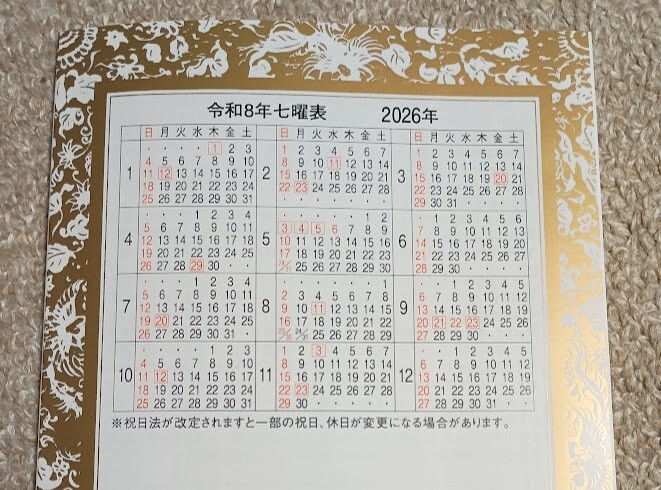 令和8年七曜表 2026年
日 月 火 水 木 金 土
日 月 火 水 木 金 土
日 月 火 水 木 金 土
1
・ ・ ・ ・ 1 2 3
4 5 6 7 8 9 10
11 12 13 14 15 16 17
18 19 20 21 22 23 24
25 26 27 28 29 30 31
2
1 2 3 4 5 6 7
8 9 10 11 12 13 14
15 16 17 18 19 20 21
22 23 24 25 26 27 28
・ ・ ・ ・ ・ ・ ・
3
1 2 3 4 5 6 7
8 9 10 11 12 13 14
15 16 17 18 19 20 21
22 23 24 25 26 27 28
29 30 31 ・ ・ ・ ・
4
・ ・ ・ 1 2 3 4
5 6 7 8 9 10 11
12 13 14 15 16 17 18
19 20 21 22 23 24 25
26 27 28 29 30 ・ ・
5
・ ・ ・ ・ ・ 1 2
3 4 5 6 7 8 9
10 11 12 13 14 15 16
17 18 19 20 21 22 23
24/31 25 26 27 28 29 30
6
・ 1 2 3 4 5 6
7 8 9 10 11 12 13
14 15 16 17 18 19 20
21 22 23 24 25 26 27
28 29 30 ・ ・ ・ ・
7
・ ・ ・ 1 2 3 4
5 6 7 8 9 10 11
12 13 14 15 16 17 18
19 20 21 22 23 24 25
26 27 28 29 30 31 ・
8
・ ・ ・ ・ ・ ・ 1
2 3 4 5 6 7 8
9 10 11 12 13 14 15
16 17 18 19 20 21 22
23/30 24/31 25 26 27 28 29
9
・ ・ 1 2 3 4 5
6 7 8 9 10 11 12
13 14 15 16 17 18 19
20 21 22 23 24 25 26
27 28 29 30 ・ ・ ・
10
・ ・ ・ ・ 1 2 3
4 5 6 7 8 9 10
11 12 13 14 15 16 17
18 19 20 21 22 23 24
25 26 27 28 29 30 31
11
1 2 3 4 5 6 7
8 9 10 11 12 13 14
15 16 17 18 19 20 21
22 23 24 25 26 27 28
29 30 ・ ・ ・ ・ ・
12
・ ・ 1 2 3 4 5
6 7 8 9 10 11 12
13 14 15 16 17 18 19
20 21 22 23 24 25 26
27 28 29 30 31 ・ ・
※祝日法が改定されますと一部の祝日、休日が変更になる場合があります。